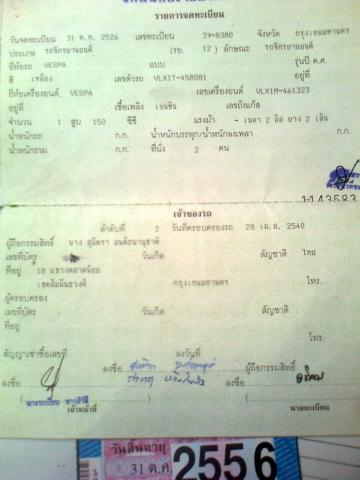 รายการจดทะเบียน
วันจดทะเบียน 31 ต.ค. 2526 เลขทะเบียน 3จ-8380 จังหวัด กรุงเทพมหานคร
ประเภท รถจักรยานยนต์ (รย. 12) ลักษณะ รถจักรยานยนต์
ยี่ห้อรถ VESPA แบบ รุ่นปี ค.ศ.
สี เหลือง เลขตัวรถ VLX1T-458081 อยู่ที่
ยี่ห้อเครื่องยนต์ VESPA เลขเครื่องยนต์ VLX1M-461323
อยู่ที่ เชื้อเพลิง เบนซิน เลขถังแก๊ส
จำนวน 1 สูบ 150 ซีซี แรงม้า - เพลา 2 ล้อ ยาง 2 เส้น
น้ำหนักรถ ก.ก. น้ำหนักบรรทุก/น้ำหนักลงเพลา ก.ก.
น้ำหนักรวม ก.ก. ที่นั่ง 2 คน
1143583
เจ้าของรถ
ลำดับที่ 2 วันที่ครอบครองรถ 28 เม.ย. 2540
ผู้ถือกรรมสิทธิ์ นาง สุนิตรา
เลขที่บัตร วันเกิด สัญชาติ ไทย
ที่อยู่ 18 แขวงตลาดน้อย
เขตสัมพันธวงศ์ กรุงเทพมหานคร โทร.
ผู้ครอบครอง
เลขที่บัตร วันเกิด สัญชาติ
ที่อยู่
โทร.
สัญญาเช่าซื้อเลขที่ ลงวันที่
ลงชื่อ ผู้ถือกรรมสิทธิ์
ลงชื่อ ลงชื่อ
เจ้าหน้าที่ นายทะเบียน
วันสิ้นอายุ
31 ต.ค. 2556